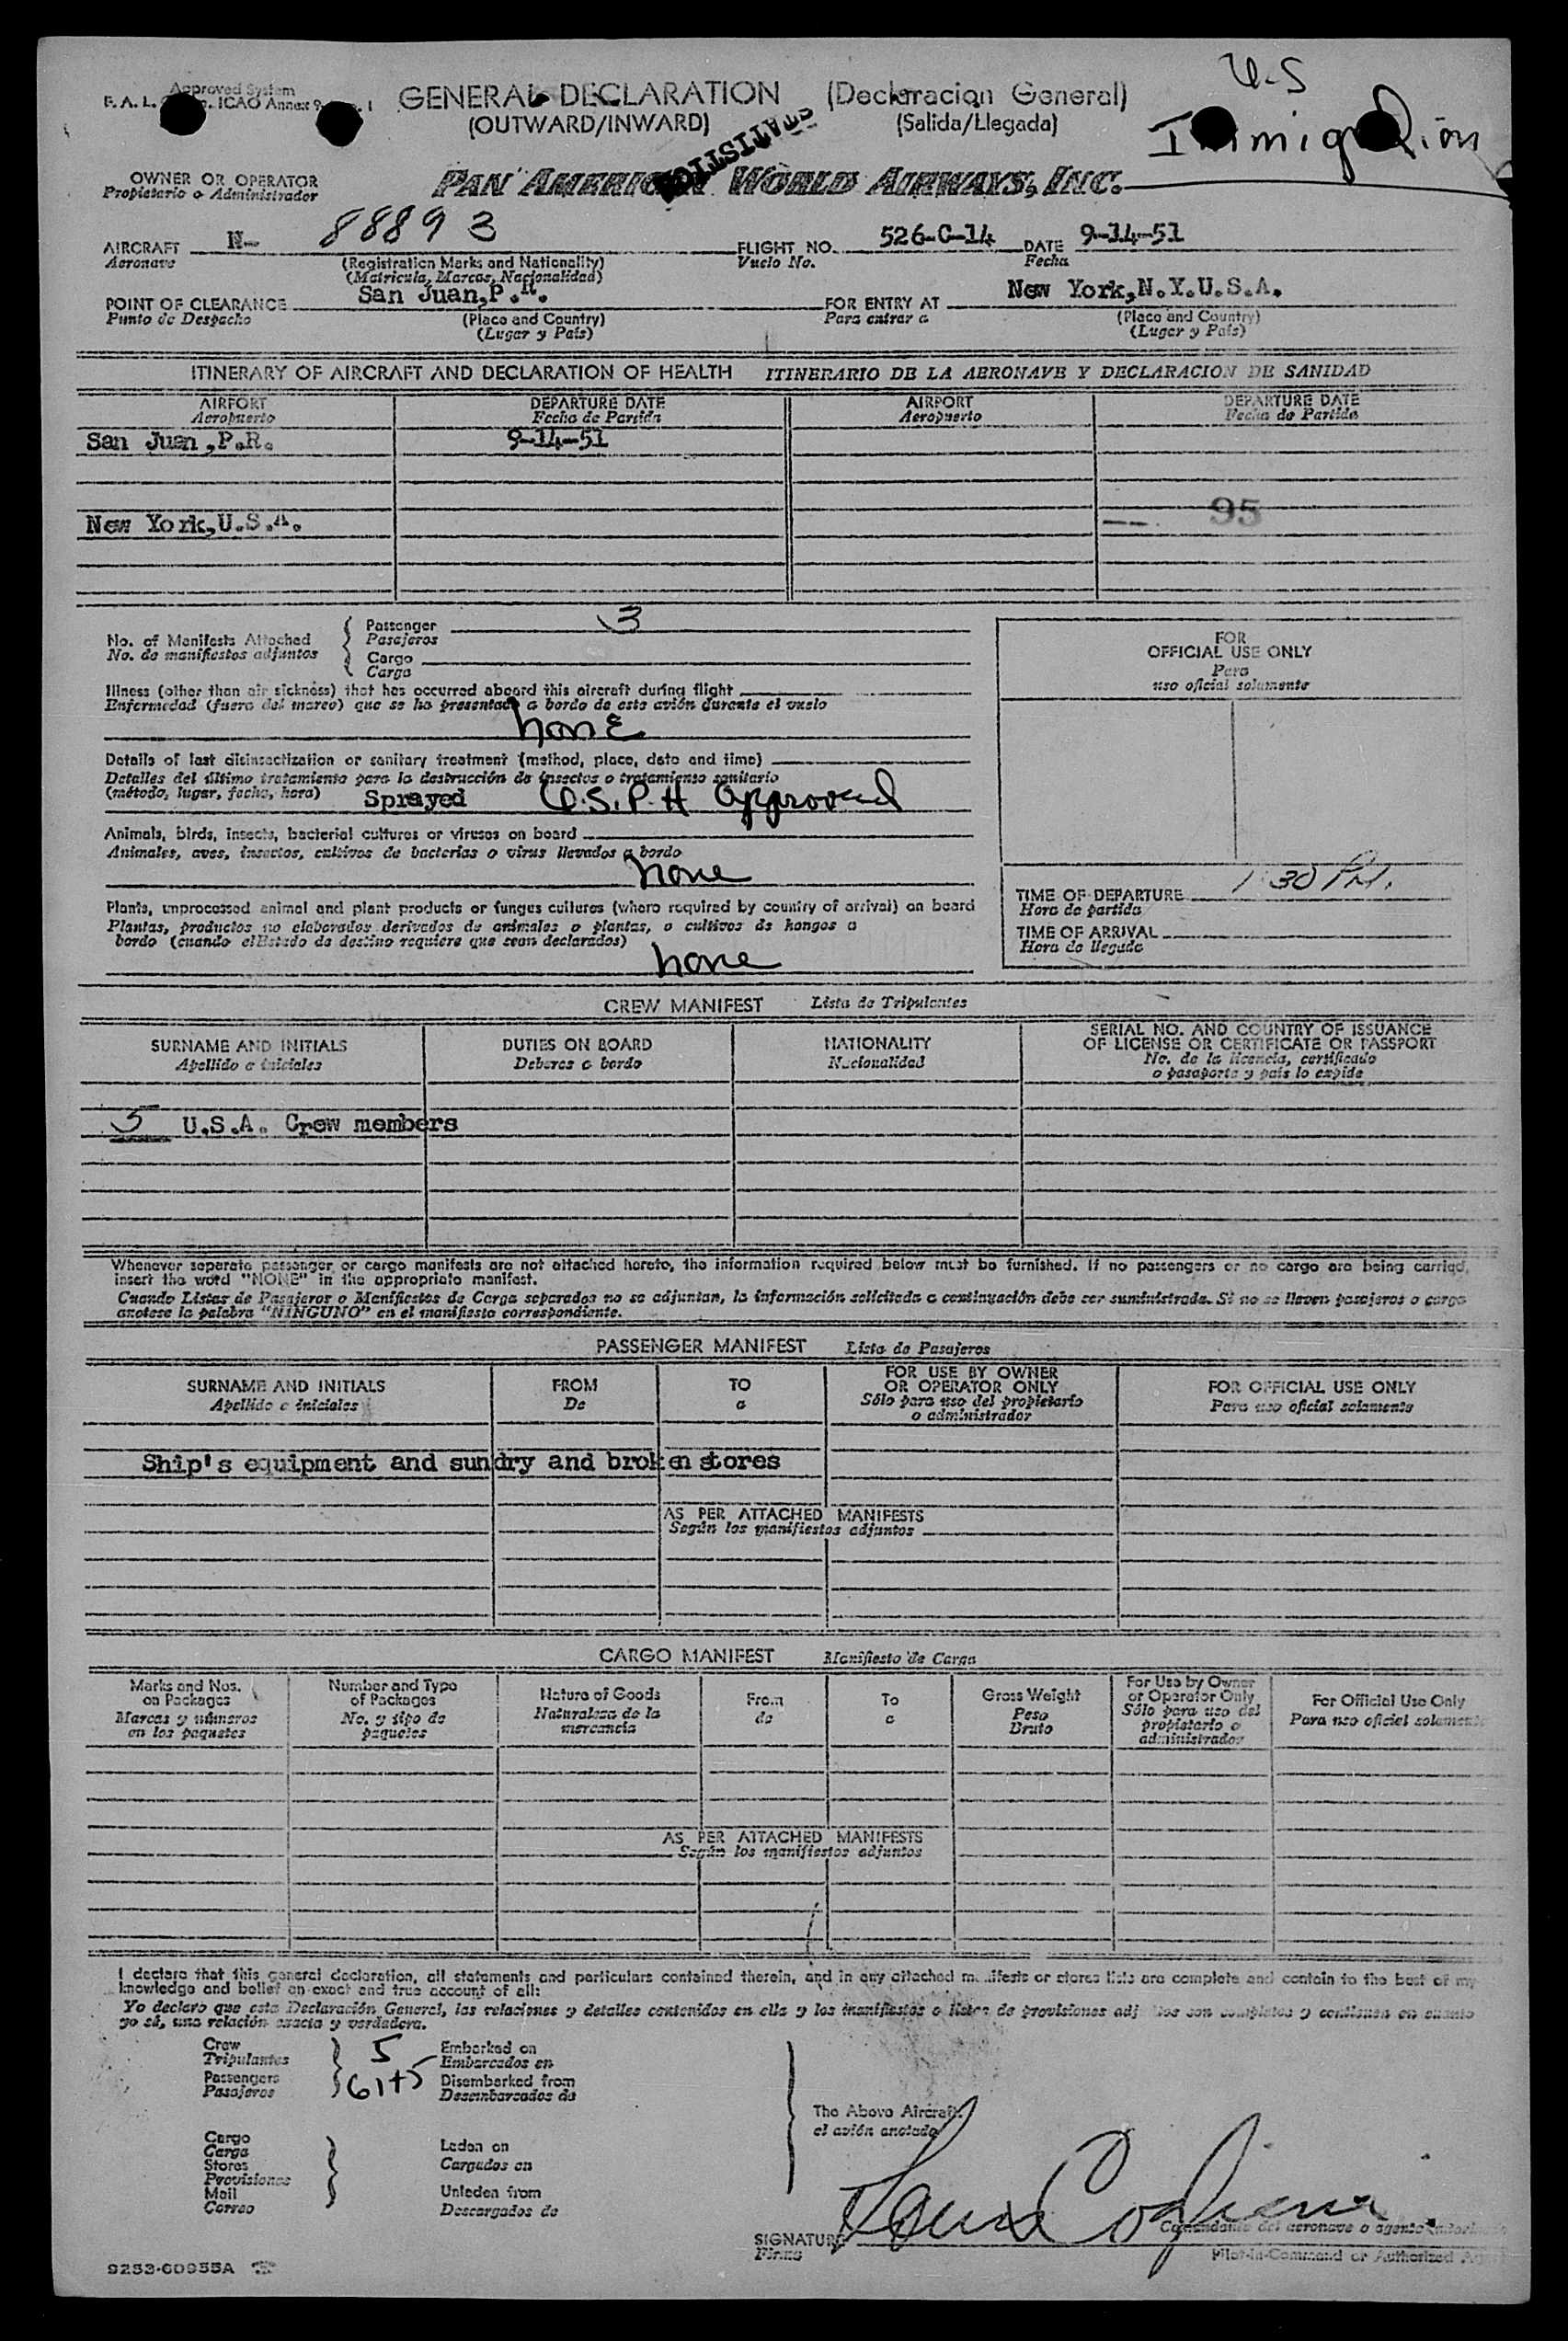 Approved System
F. A. L. ICAO Annex 9 1
U-S
Immigration
GENERAL DECLARATION (Declaracion General)
(OUTWARD/INWARD) (Salida/Llegada)
STATISTICS
OWNER OR OPERATOR
Propietario o Administrador
PAN AMERICAN WORLD AIRWAYS, INC.
AIRCRAFT N- 88893 FLIGHT NO. 526-C-14 DATE 9-14-51
Aeronave (Registration Marks and Nationality) Vuelo No. Fecha
(Matricula, Marcas, Nacionalidad)
POINT OF CLEARANCE San Juan,P.R. FOR ENTRY AT New York,N.Y.U.S.A.
Punto de Despacho (Place and Country) Para entrar a (Place and Country)
(Lugar y País) (Lugar y País)
ITINERARY OF AIRCRAFT AND DECLARATION OF HEALTH ITINERARIO DE LA AERONAVE Y DECLARACION DE SANIDAD
AIRPORT DEPARTURE DATE AIRPORT DEPARTURE DATE
Aeropuerto Fecha de Partida Aeropuerto Fecha de Partida
San Juan,P.R. 9-14-51
95
New York,U.S.A.
No. of Manifests Attached Passenger 3
No. de manifiestos adjuntos Pasajeros
Cargo
Carga
FOR
OFFICIAL USE ONLY
Para
uso oficial solamente
Illness (other than air sickness) that has occurred aboard this aircraft during flight
Enfermedad (fuera del mareo) que se ha presentado a bordo de este avión durante el vuelo
none
Details of last disinsectization or sanitary treatment (method, place, date and time)
Detalles del último tratamiento para la destrucción de insectos o tratamiento sanitario
(método, lugar, fecha, hora) Sprayed U.S.P.H approved
Animals, birds, insects, bacterial cultures or viruses on board
Animales, aves, insectos, cultivos de bacterias o virus llevados a bordo
none
TIME OF DEPARTURE 1 30 PM.
Hora de partida
TIME OF ARRIVAL
Hora de llegada
Plants, unprocessed animal and plant products or fungus cultures (where required by country of arrival) on board
Plantas, productos no elaborados derivados de animales o plantas, o cultivos de hongos a
bordo (cuando el Estado de destino requiere que sean declarados)
none
CREW MANIFEST Lista de Tripulantes
SURNAME AND INITIALS DUTIES ON BOARD NATIONALITY SERIAL NO. AND COUNTRY OF ISSUANCE
OF LICENSE OR CERTIFICATE OR PASSPORT
Apellido e iniciales Deberes a bordo Nacionalidad No. de la licencia, certificado
o pasaporte y país lo expide
5 U.S.A. Crew members
Whenever separate passenger or cargo manifests are not attached hereto, the information required below must be furnished. If no passengers or no cargo are being carried,
insert the word "NONE" in the appropriate manifest.
Cuando Listas de Pasajeros o Manifiestos de Carga separados no se adjuntan, la información solicitada a continuación debe ser suministrada. Si no se llevan pasajeros o carga
anotese la palabra "NINGUNO" en el manifiesto correspondiente.
PASSENGER MANIFEST Lista de Pasajeros
SURNAME AND INITIALS FROM TO FOR USE BY OWNER
OR OPERATOR ONLY FOR OFFICIAL USE ONLY
Apellido e iniciales De a Sólo para uso del propietario
o administrador Para uso oficial solamente
Ship's equipment and sundry and broken stores
AS PER ATTACHED MANIFESTS
Según los manifiestos adjuntos
CARGO MANIFEST Manifiesto de Carga
Marks and Nos.
on Packages
Marcas y números
en los paquetes
Number and Type
of Packages
No. y tipo de
paquetes
Nature of Goods
Naturaleza de la
mercancia
From
de
To
a
Gross Weight
Peso
Bruto
For Use by Owner
or Operator Only
Sólo para uso del
propietario o
administrador
For Official Use Only
Para uso oficial solamente
AS PER ATTACHED MANIFESTS
Según los manifiestos adjuntos
I declare that this general declaration, all statements and particulars contained therein, and in any attached manifests or stores lists are complete and contain to the best of my
knowledge and belief an exact and true account of all:
Yo declaro que esta Declaración General, las relaciones y detalles contenidos en ella y los manifiestos o listas de provisiones son completos y contienen en cuanto
yo sé, una relación exacta y verdadera.
Crew 5 Embarked on
Tripulantes Embarcados en
Passengers 61+5 Disembarked from
Pasajeros Desembarcados de
The Above Aircraft
el avión anotado
Cargo
Carga Laden on
Stores Cargados en
Provisiones
Mail Unladen from
Correo Descargados de
SIGNATURE Comandante del aeronave o agente
Firma Pilot-in-Command or Authorized
9253-60955A